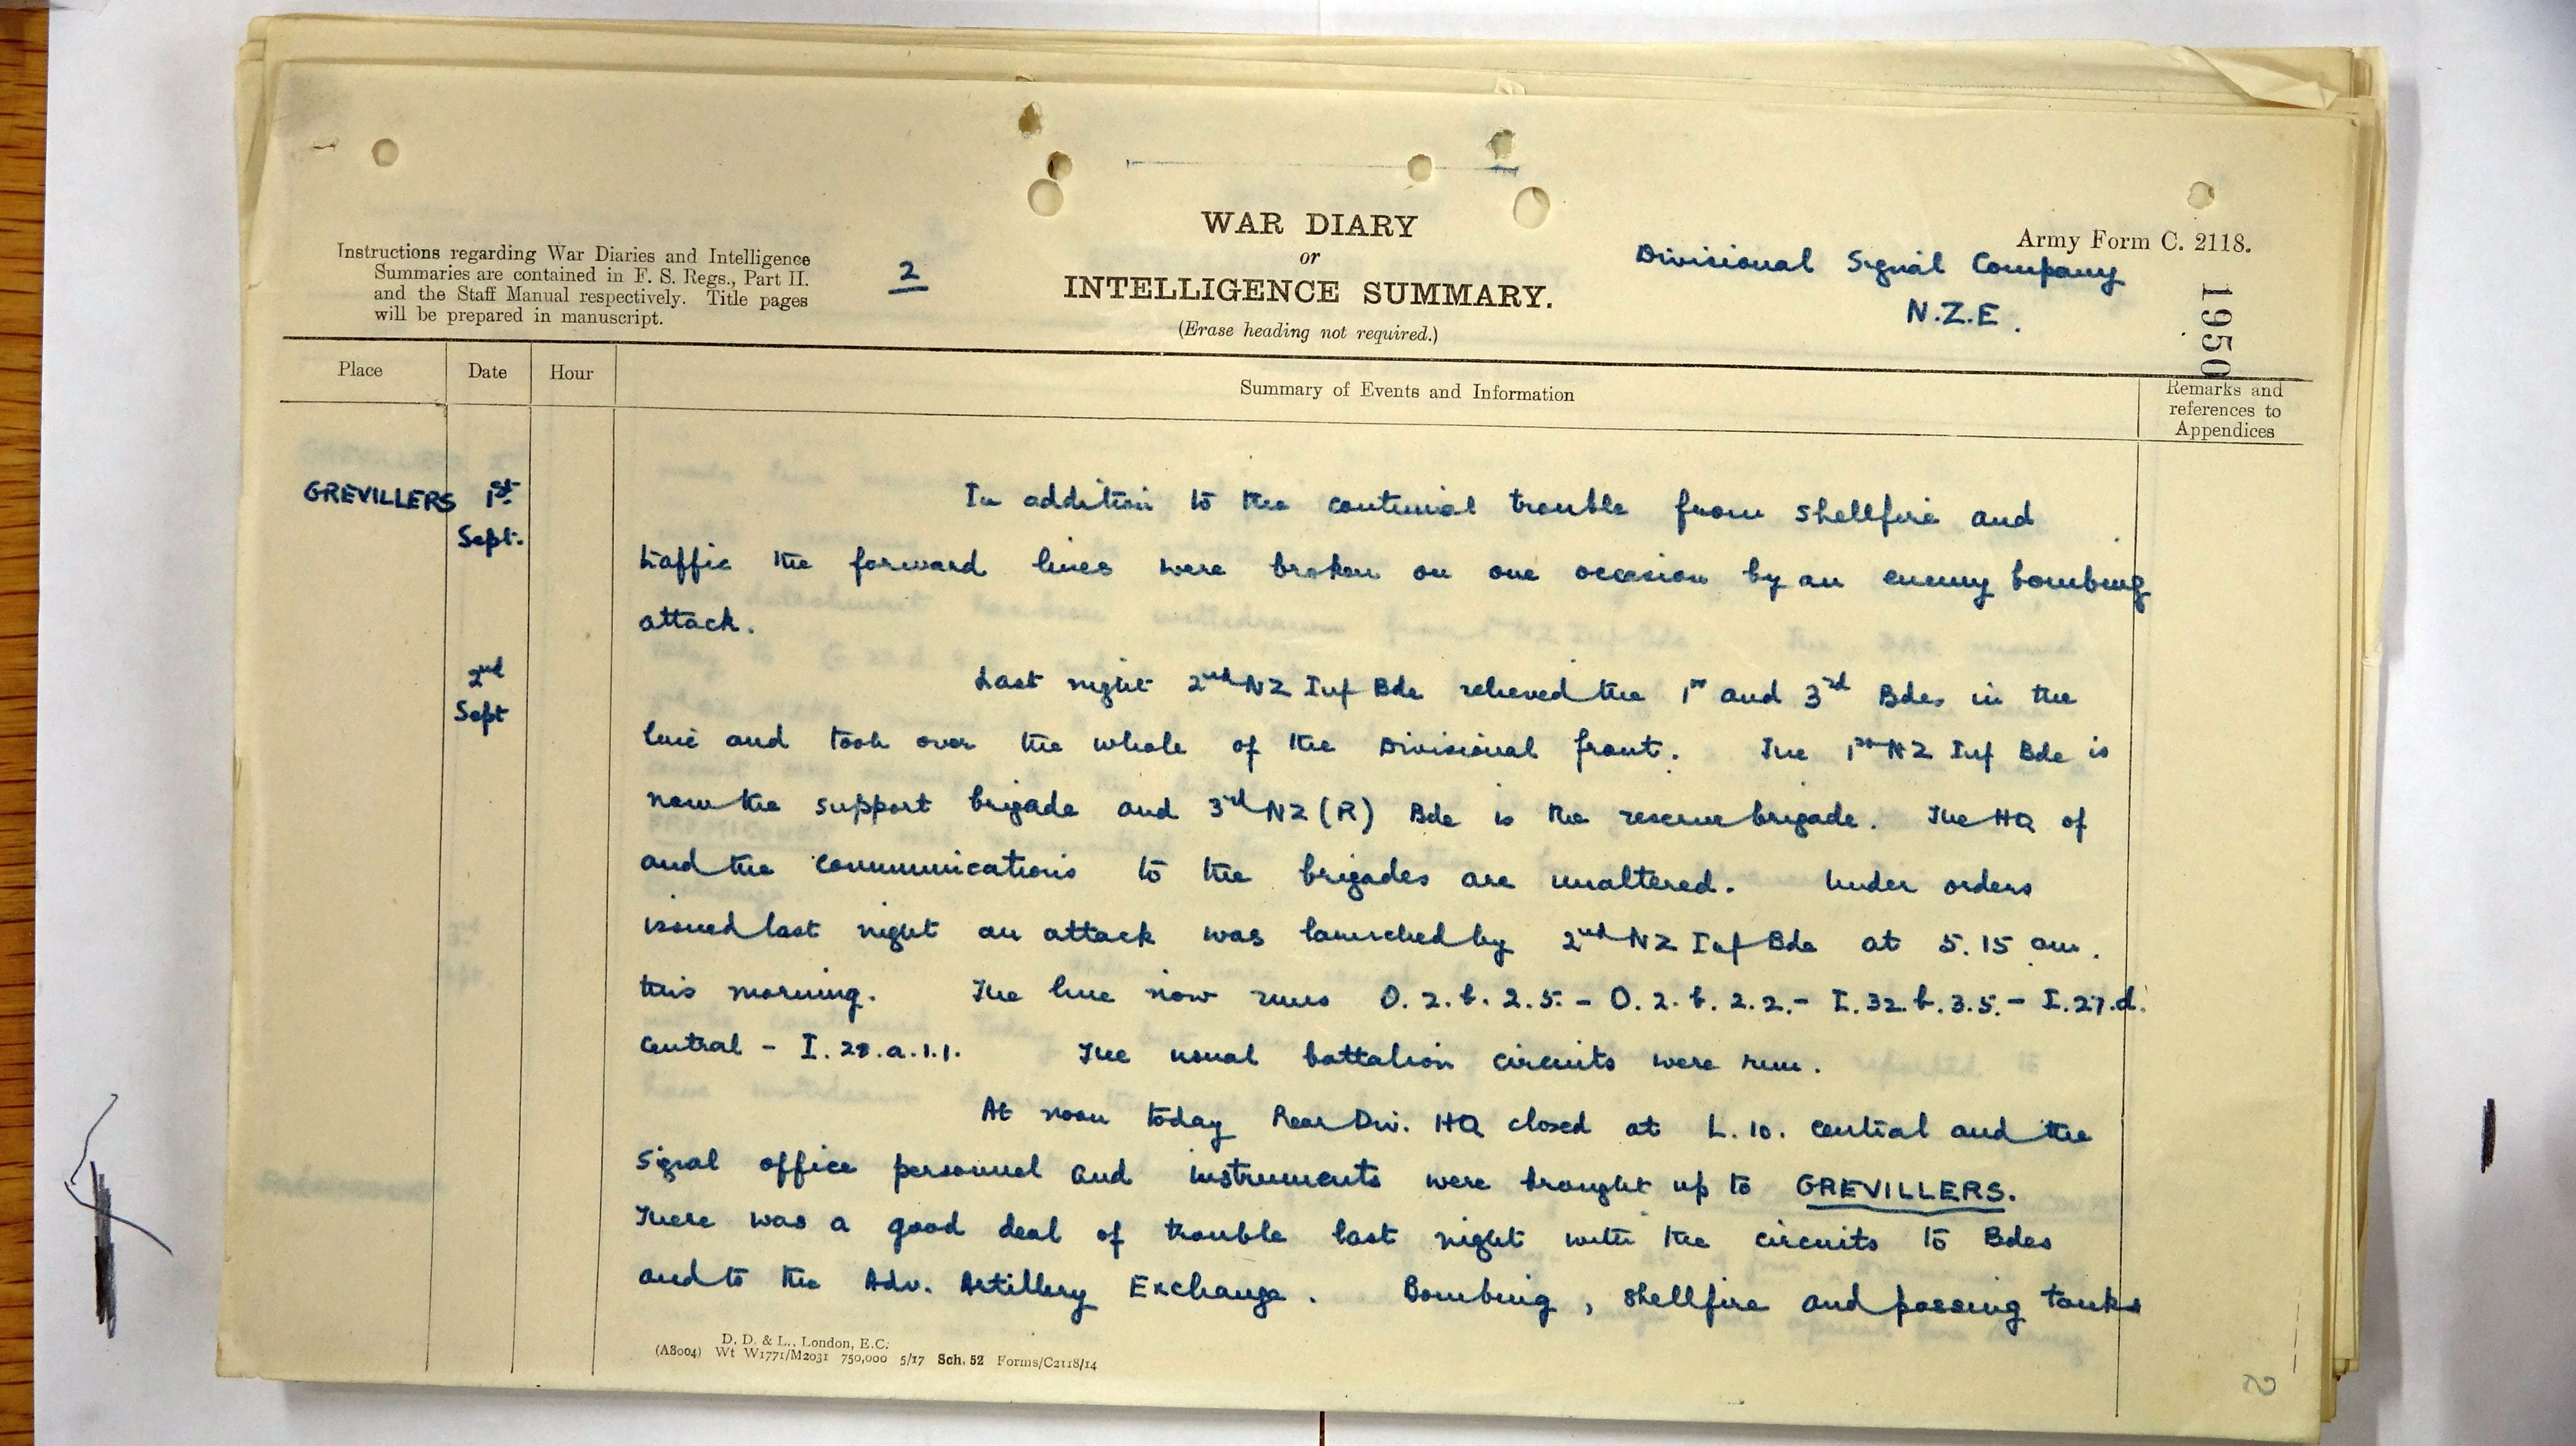 Army Form C. 2118.
WAR DIARY
or
INTELLIGENCE SUMMARY.
(Erase heading not required.)
Instructions regarding War Diaries and Intelligence
Summaries are contained in F. S. Regs., Part II.
and the Staff Manual respectively. Title pages
will be prepared in manuscript.
2
Divisional Signal Company
N.Z.E.
1950
Place
Date
Hour
Summary of Events and Information
Remarks and
references to
Appendices
GREVILLERS 1st
Sept.
In addition to the continual trouble from shellfire and
traffic the forward lines were broken on one occasion by an enemy bombing
attack.
2nd
Sept
Last night 2nd NZ Inf Bde relieved the 1st and 3rd Bdes in the
line and took over the whole of the Divisional front. The 1st NZ Inf Bde is
now the support brigade and 3rd NZ (R) Bde is the reserve brigade. The HQ of
and the communications to the brigades are unaltered. Under orders
issued last night an attack was launched by 2nd NZ Inf Bde at 5.15 am.
this morning. The line now runs O.2.b.2.5. - O.2.b.2.2. - I.32.b.3.5. - I.27.d.
central - I.28.a.1.1. The usual battalion circuits were run.
At noon today Rear Div. HQ closed at L.10. central and the
Signal office personnel and instruments were brought up to GREVILLERS.
There was a good deal of trouble last night with the circuits to Bdes
and to the Adv. Artillery Exchange. Bombing, shellfire and passing tanks
D. D. & L., London, E.C.
(A8004) Wt W1771/M2031 750,000 5/17 Sch. 52 Forms/C2118/14
2